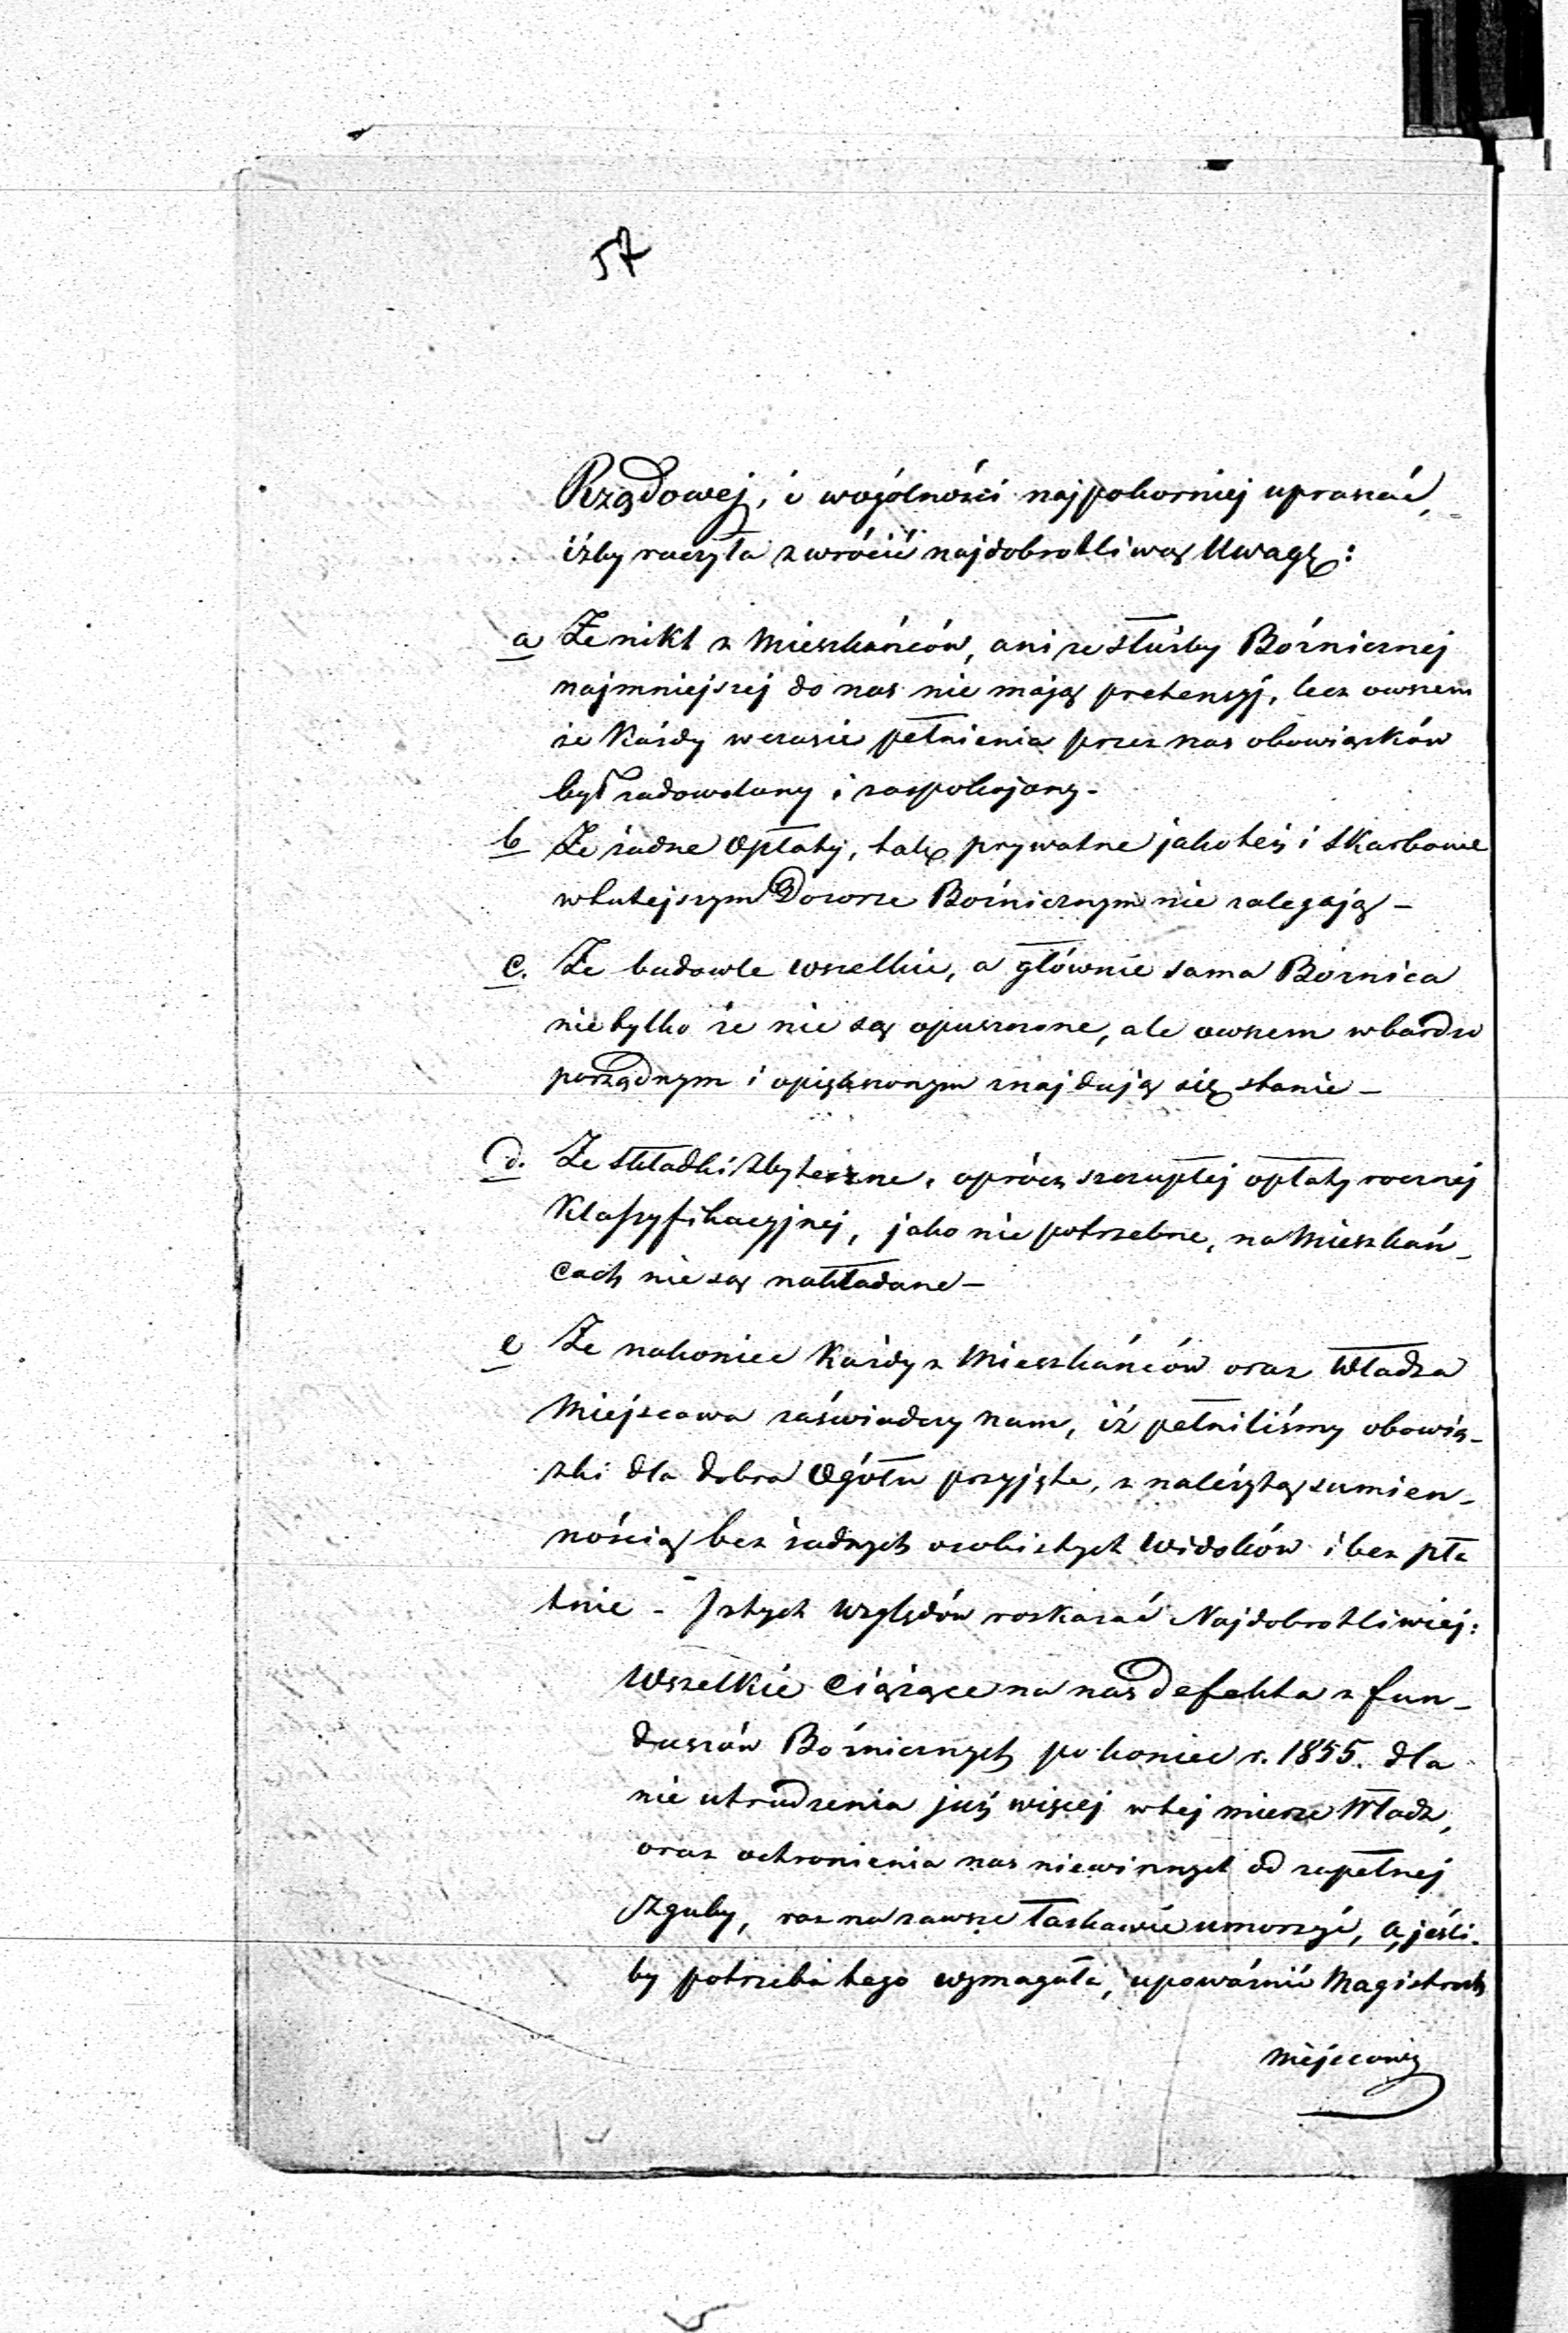 57
Rządowej, i wogólności najpokorniej upraszać,
iżby raczyła zwrócić najdobrotliwszą Uwagę:
a Że nikt z Mieszkańców, ani ze służby Bóżnicznej
najmniejszej do nas nie mają pretensyj, lecz owszem
że każdy wczasie pełnienia przez nas obowiązków
był zadowolany i zaspokojony –
b Że żadne Opłaty, tak prywatne jako też i Skarbowe
wtutejszym Dozorze Bóżnicznym nie zalegają –
c. Że budowle wszelkie, a głównie sama Bóżnica
nietylko że nie są opuszczone, ale owszem wbardzo
porządnym i upięknionym znajdują się stanie –
d. Że Składki zbyteczne, oprócz szczupłej opłaty rocznej
Klassyfikacyjnej, jako nie potrzebne, na Mieszkań-
cach nie są nakładane –
e Że nakoniec Każdy z Mieszkańców oraz Władza
Miejscowa zaświadczy nam, iż pełniliśmy obowią-
zki dla dobra Ogółu przyjęte, z należytą sumien-
nością bez żadnych osobistych widoków i bez pła
tnie – I z tych względów rozkazać Najdobrotliwiej:
Wszelkie ciążące na nas defekta z fun-
duszów Bóżnicznych po koniec r. 1855. dla
nie utrudzenia już więcej wtej mierze Władz,
oraz ochronienia nas niewinnych od zupełnej
zguby, raz na zawsze łaskawie umorzyć, a jeśli-
by potrzeba tego wymagała, upoważnić Magistrat
miejscowy